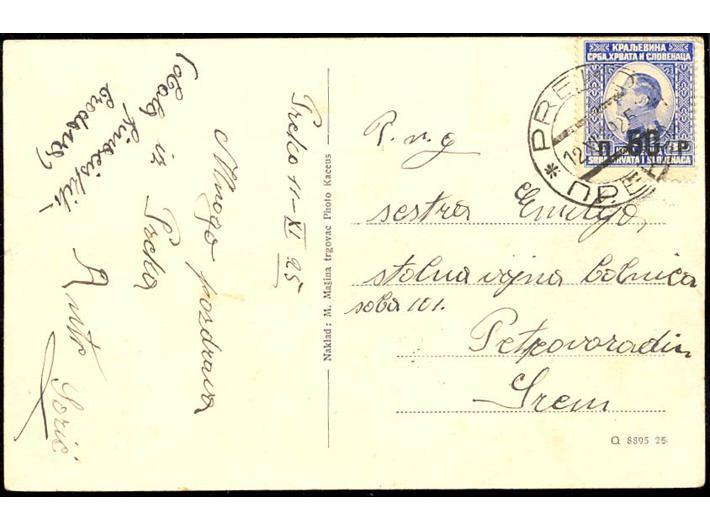 Preko 11–XI 25
Mnogo pozdrava
iz Preka
Tebi
Anto Sorić
Naklad: M. Mašina trgovac Photo Kaceus
КРАЉЕВИНА
СРБА, ХРВАТА И СЛОВЕНАЦА
П 50 Р
SRBA, HRVATA I SLOVENACA
PREKO
12
25
ПРЕКО
P. n. g
sestra Emilija,
stolna vojna bolnica
soba 101.
Petrovaradin
Srem
Q 8895 25